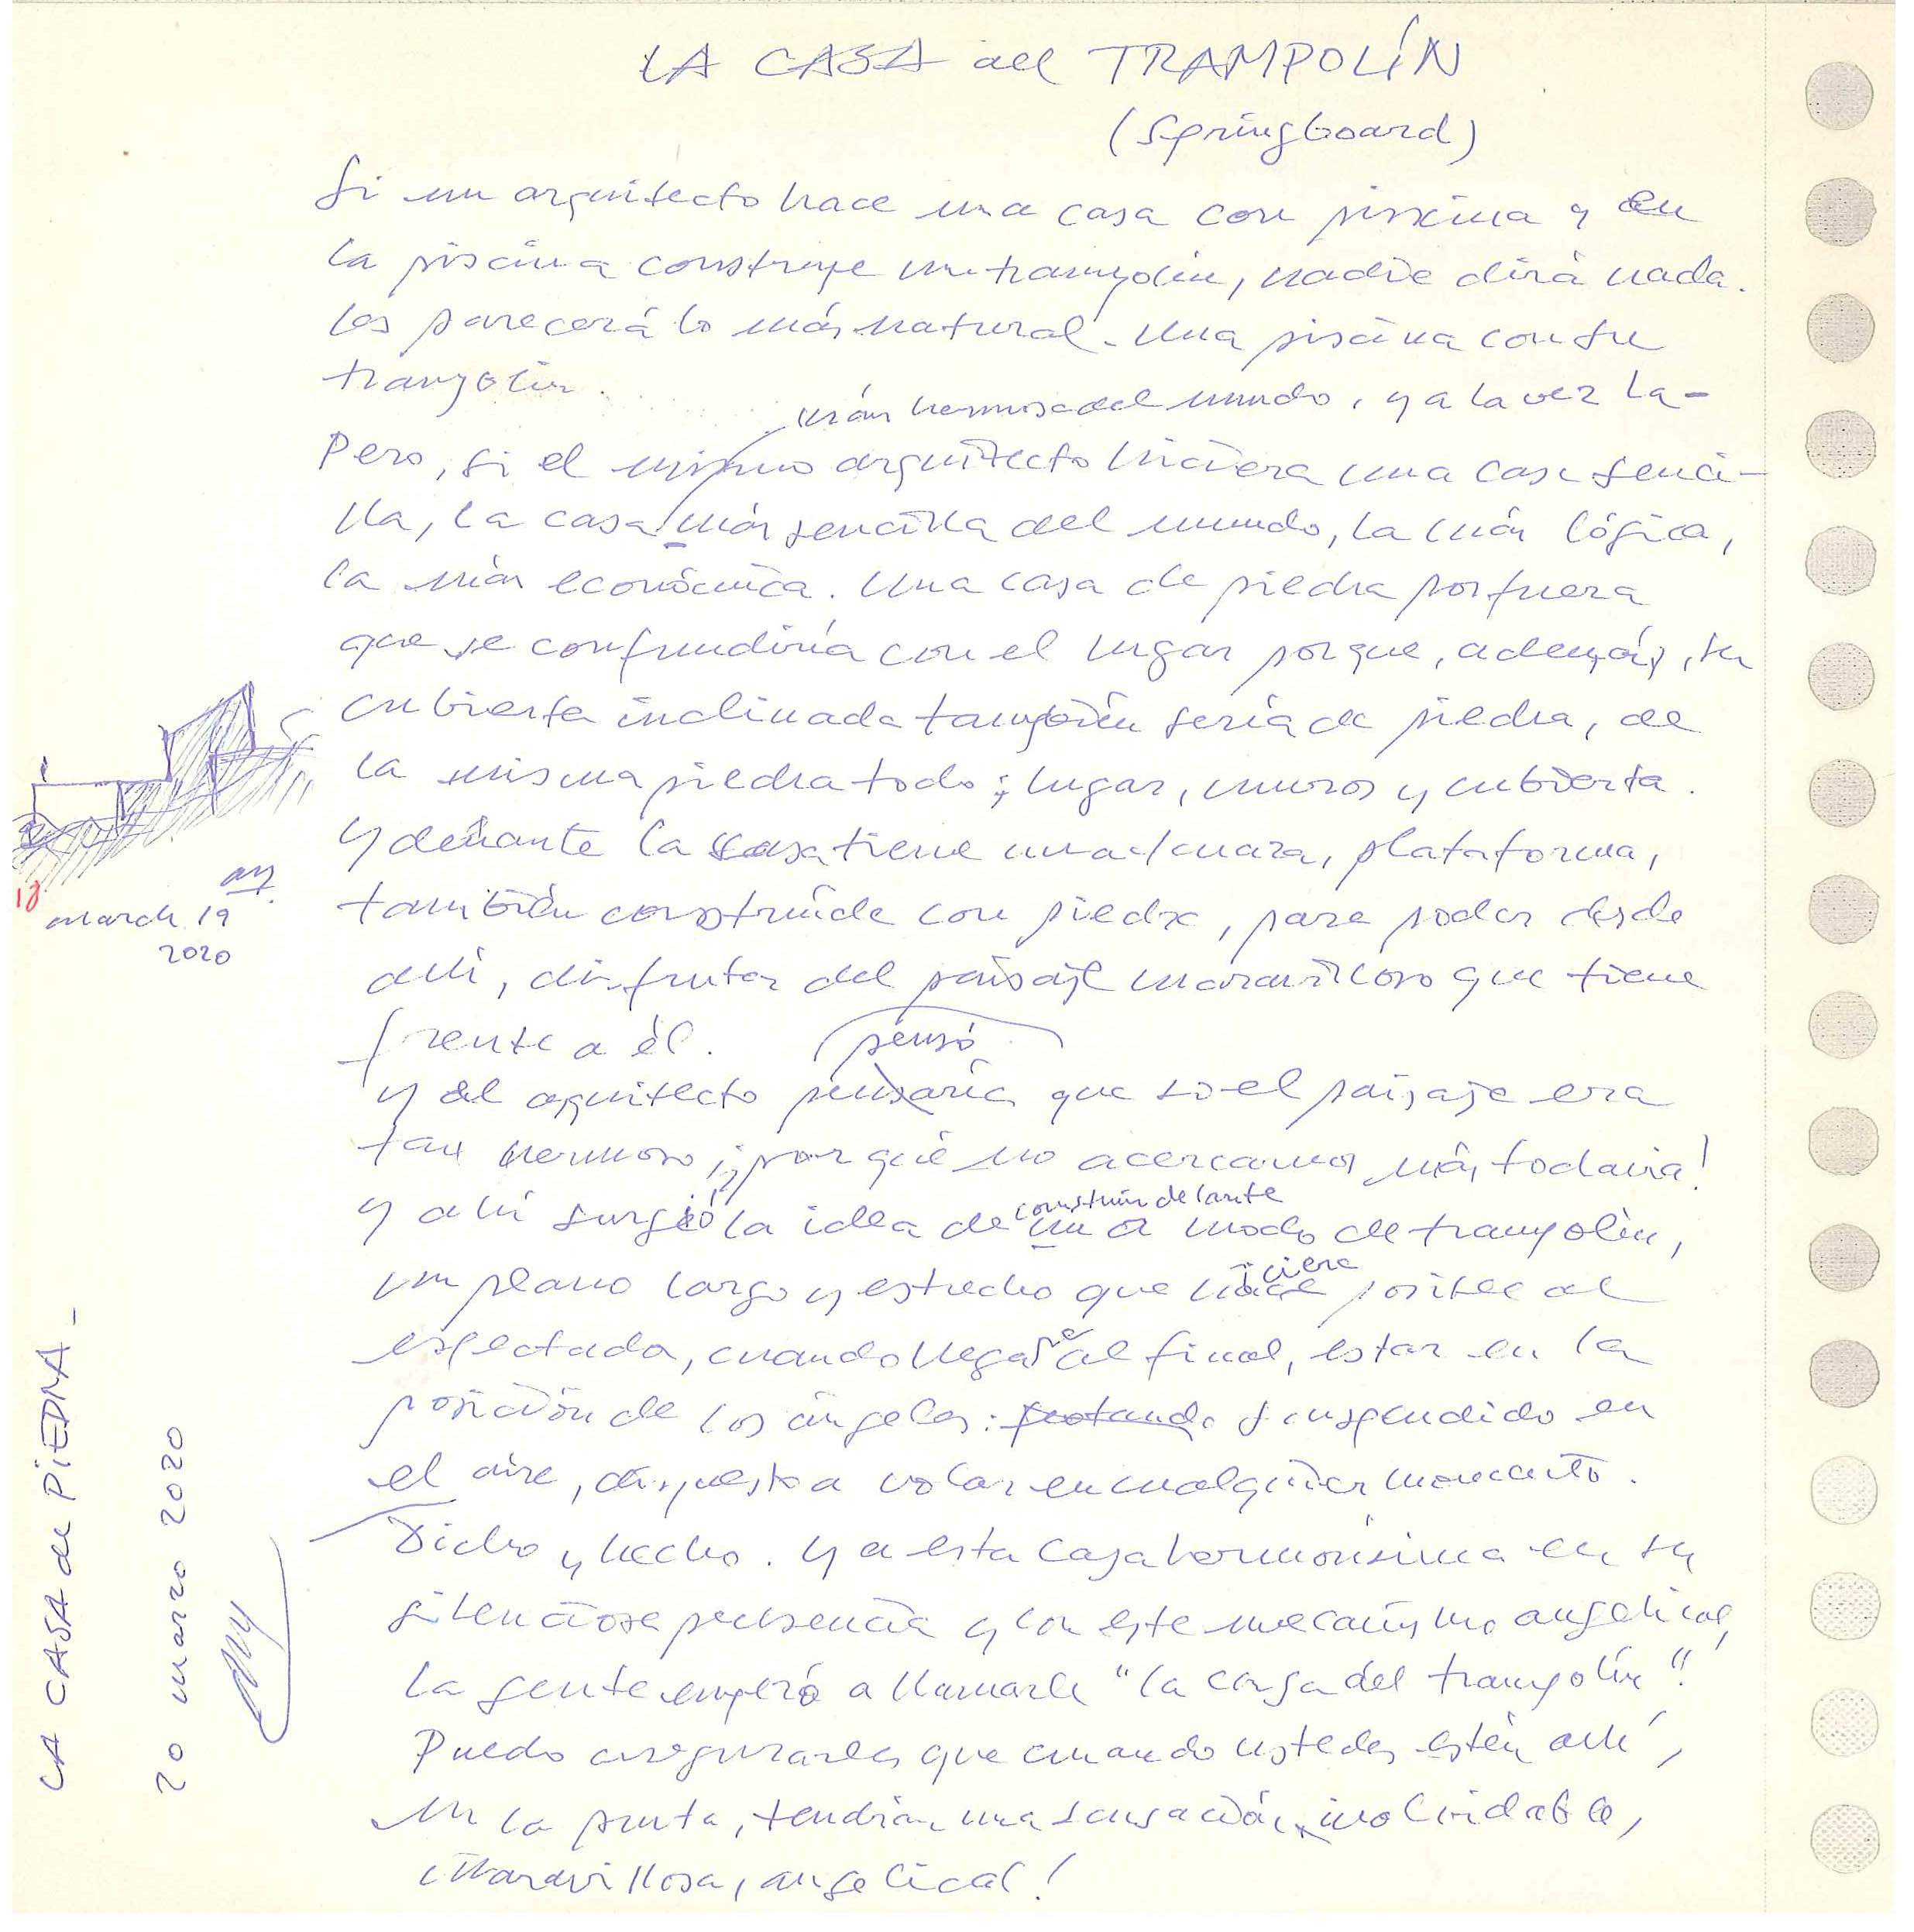 LA CASA del TRAMPOLÍN
(Springboard)
Si un arquitecto hace una casa con piscina y en
la piscina construye un trampolín, nadie dirá nada.
Les parecerá lo más natural. Una piscina con su
trampolín.
más hermosa del mundo, y a la vez la-
Pero, si el mismo arquitecto hiciera una casa senci-
lla, la casa más sencilla del mundo, la más lógica,
la más económica. Una casa de piedra por fuera
que se confundiría con el lugar porque, además, su
cubierta inclinada también sería de piedra, de
la misma piedra todo; lugar, muros y cubierta.
Y delante la casa tiene una plataforma,
también construída con piedra, para poder desde
allí, disfrutar del paisaje maravilloso que tiene
frente a él.
pensó
Y el arquitecto pensaría que si el paisaje era
tan hermoso ¡¿por qué no acercarnos más todavía!
Y ahí surgió la idea de un a modo de trampolín,
construir delante
un plano largo y estrecho que hace posible al
iciera
espectador, cuando llegase al final, estar en la
posición de los ángeles: flotando suspendido en
el aire, dispuesto a volar en cualquier momento.
Dicho y hecho. Y a esta casa hermosísima en su
silenciosa presencia y con este mecanismo angelical,
la gente empezó a llamarle "la casa del trampolín".
Puedo asegurarles que cuando ustedes estén allí,
en la punta, tendrán una sensación inolvidable,
¡Maravillosa, angelical!
18
march 19
2020
LA CASA de PIEDRA-
20 marzo 2020